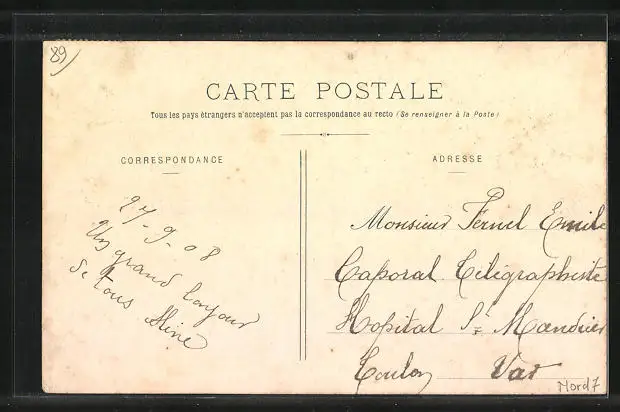 89
CARTE POSTALE
Tous les pays étrangers n'acceptent pas la correspondance au recto (Se renseigner à la Poste)
CORRESPONDANCE
27-9-08
Un grand bonjour
de tous Aline
ADRESSE
Monsieur Fernel Emile
Caporal Télégraphiste
Hopital St Mandrier
Toulon Var
Nord 7